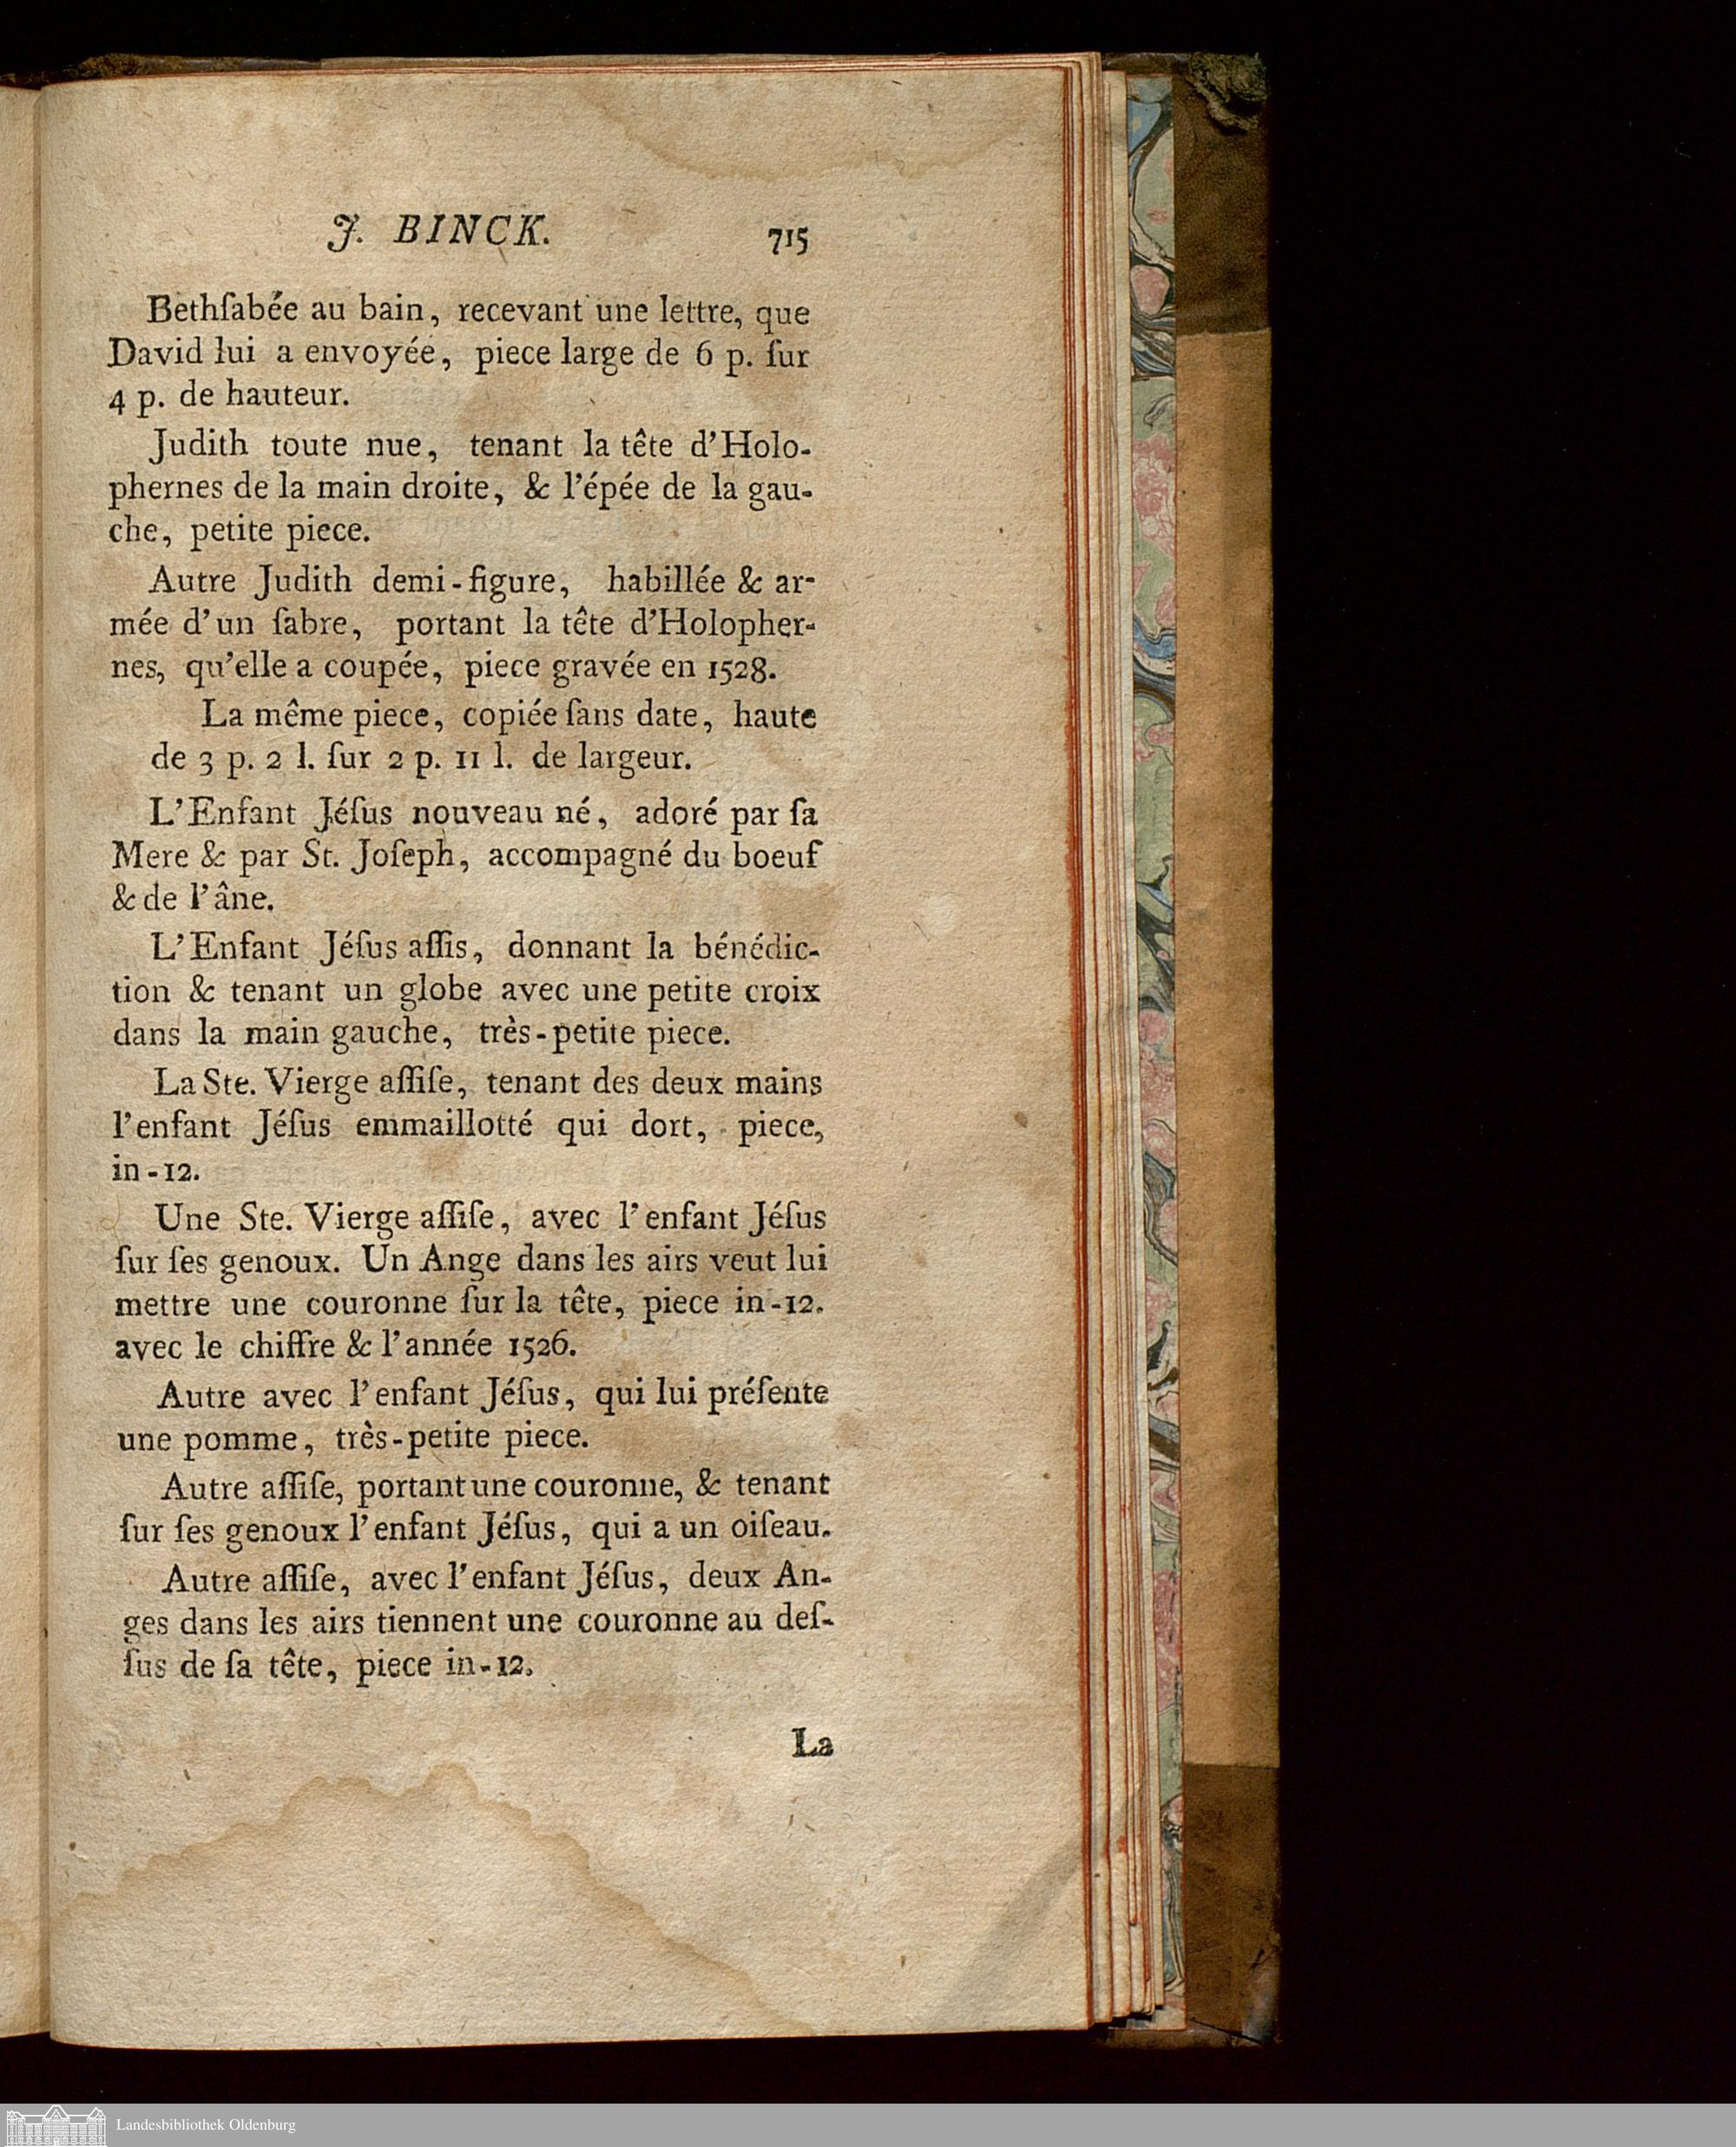 J. BINCK. 715
Bethſabée au bain, recevant une lettre, que
David lui a envoyée, piece large de 6 p. ſur
4 p. de hauteur.
Judith toute nue, tenant la tête d'Holo-
phernes de la main droite, & l'épée de la gau-
che, petite piece.
Autre Judith demi-figure, habillée & ar-
mée d'un ſabre, portant la tête d'Holopher-
nes, qu'elle a coupée, piece gravée en 1528.
La même piece, copiée ſans date, haute
de 3 p. 2 l. ſur 2 p. 11 l. de largeur.
L'Enfant Jéſus nouveau né, adoré par ſa
Mere & par St. Joſeph, accompagné du boeuf
& de l'âne.
L'Enfant Jéſus aſſis, donnant la bénédic-
tion & tenant un globe avec une petite croix
dans la main gauche, très-petite piece.
La Ste. Vierge aſſiſe, tenant des deux mains
l'enfant Jéſus emmaillotté qui dort, piece,
in-12.
Une Ste. Vierge aſſiſe, avec l'enfant Jéſus
ſur ſes genoux. Un Ange dans les airs veut lui
mettre une couronne ſur la tête, piece in-12.
avec le chiffre & l'année 1526.
Autre avec l'enfant Jéſus, qui lui préſente
une pomme, très-petite piece.
Autre aſſiſe, portant une couronne, & tenant
ſur ſes genoux l'enfant Jéſus, qui a un oiſeau.
Autre aſſiſe, avec l'enfant Jéſus, deux An-
ges dans les airs tiennent une couronne au deſ-
ſus de ſa tête, piece in-12.
La
Landesbibliothek Oldenburg